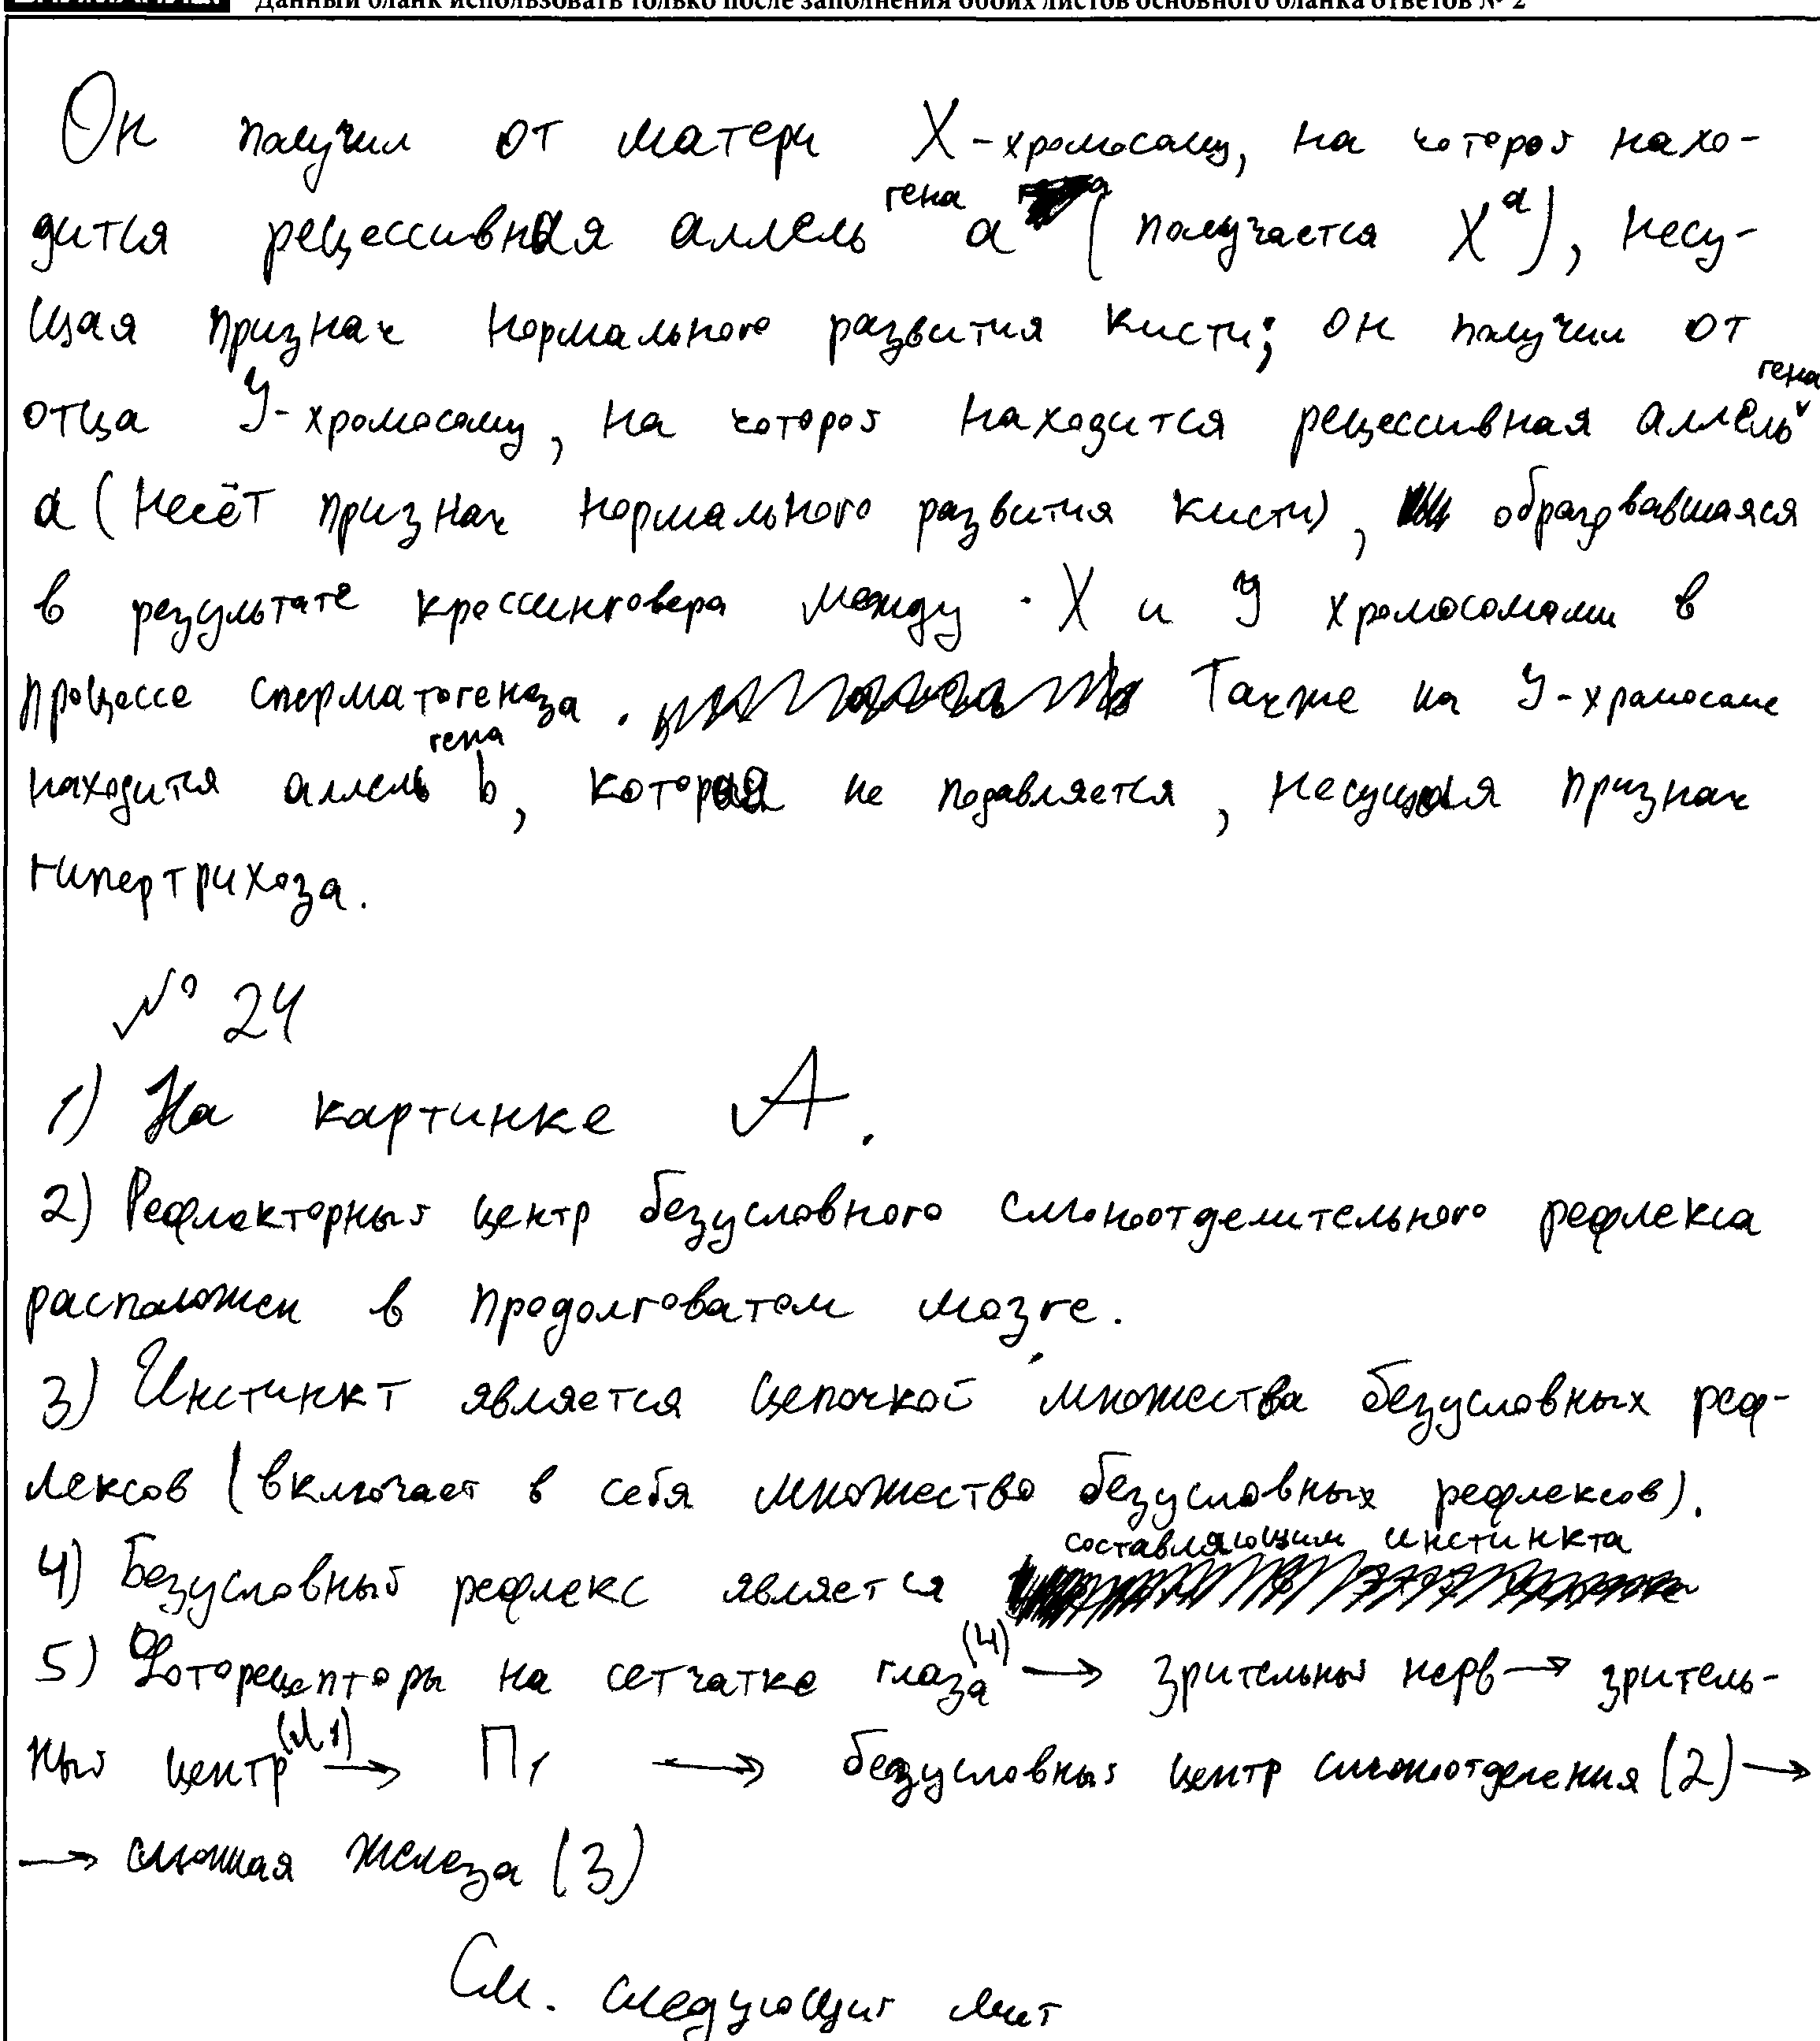 Данный бланк использовать только после заполнения обоих листов основного бланка ответов № 2
Он получил от матери X-хромосому, на которой нахо-
дится рецессивная аллель гена a (получается Xᵃ), несу-
щая признак нормального развития кисти; он получил от
отца У-хромосому, на которой находится рецессивная аллель гена
a (несёт признак нормального развития кисти), образовавшаяся
в результате кроссинговера между X и У хромосомами в
процессе сперматогенеза. Также на У-хромосоме
находится аллель гена b, которая не подавляется, несущая признак
гипертрихоза.
№ 24
1) На картинке А.
2) Рефлекторный центр безусловного слюноотделительного рефлекса
расположен в продолговатом мозге.
3) Инстинкт является цепочкой множества безусловных реф-
лексов (включает в себя множество безусловных рефлексов).
4) Безусловный рефлекс является составляющим инстинкта
5) Фоторецепторы на сетчатке глаза (4) → зрительный нерв → зритель-
ный центр (И1) → П1 → безусловный центр слюноотделения (2) →
→ слюнная железа (3)
См. следующий лист